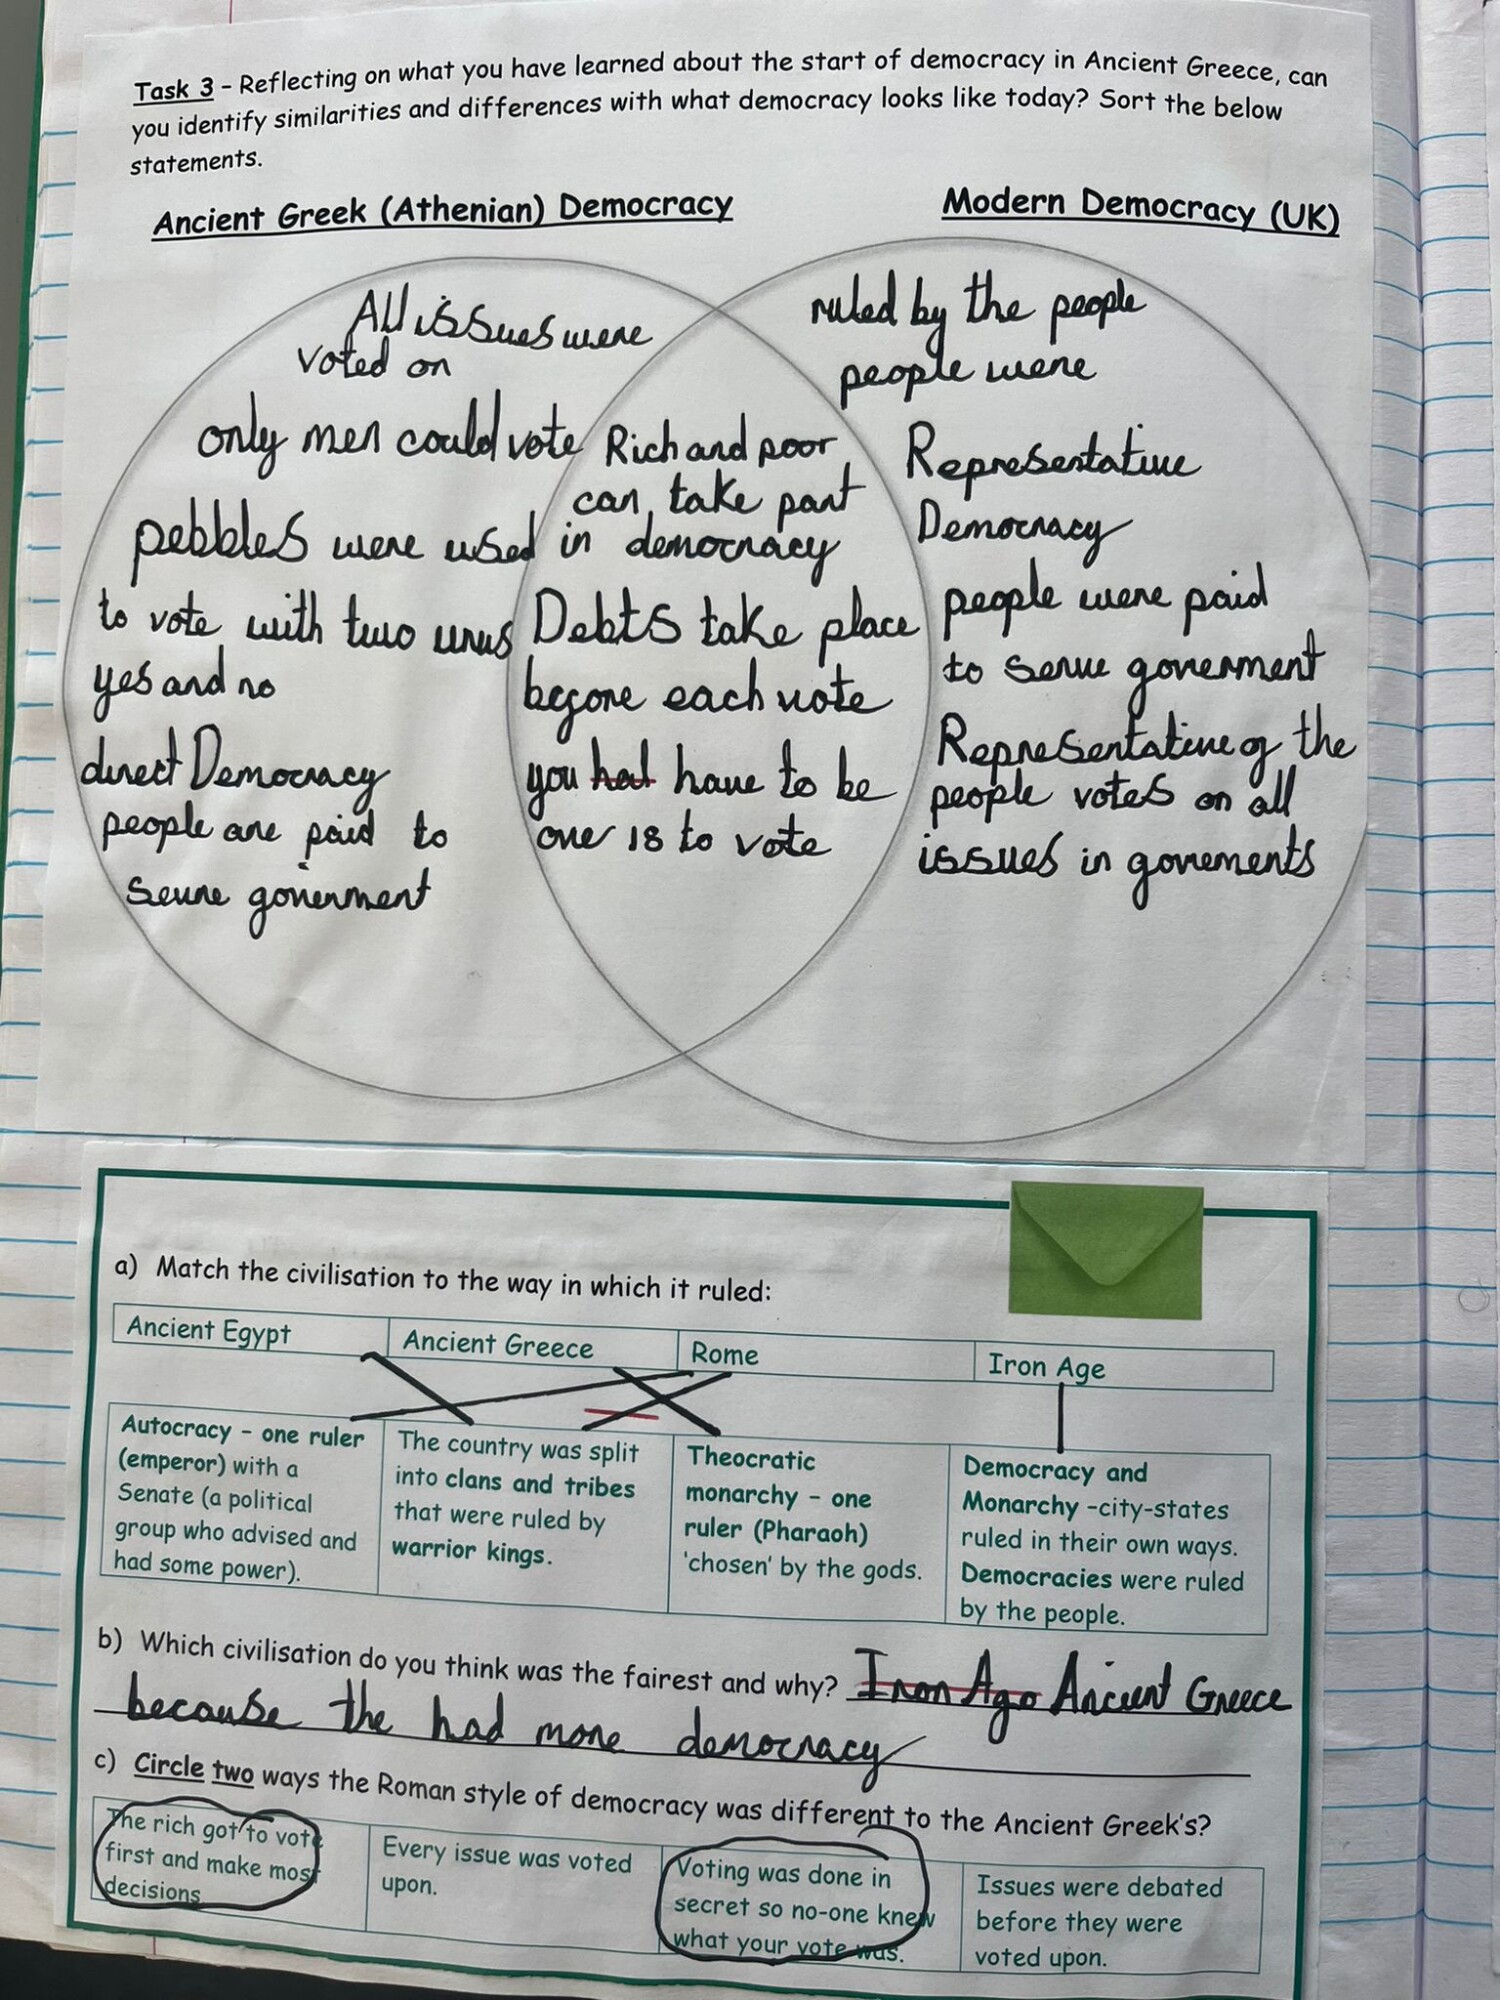 Task 3 - Reflecting on what you have learned about the start of democracy in Ancient Greece, can
you identify similarities and differences with what democracy looks like today? Sort the below
statements.
Ancient Greek (Athenian) Democracy
Modern Democracy (UK)
All issues were
voted on
only men could vote
pebbles were used
to vote with two urns
yes and no
direct Democracy
people are paid to
serve government
Rich and poor
can take part
in democracy
Debts take place
before each vote
you had have to be
over 18 to vote
ruled by the people
people were
Representative
Democracy
people were paid
to serve goverment
Representative of the
people votes on all
issues in goverments
a) Match the civilisation to the way in which it ruled:
Ancient Egypt
Ancient Greece
Rome
Iron Age
Autocracy - one ruler
(emperor) with a
Senate (a political
group who advised and
had some power).
The country was split
into clans and tribes
that were ruled by
warrior kings.
Theocratic
monarchy - one
ruler (Pharaoh)
'chosen' by the gods.
Democracy and
Monarchy -city-states
ruled in their own ways.
Democracies were ruled
by the people.
b) Which civilisation do you think was the fairest and why? Iron Age Ancient Greece
because the had more democracy
c) Circle two ways the Roman style of democracy was different to the Ancient Greek's?
The rich got to vote
first and make most
decisions
Every issue was voted
upon.
Voting was done in
secret so no-one knew
what your vote was.
Issues were debated
before they were
voted upon.